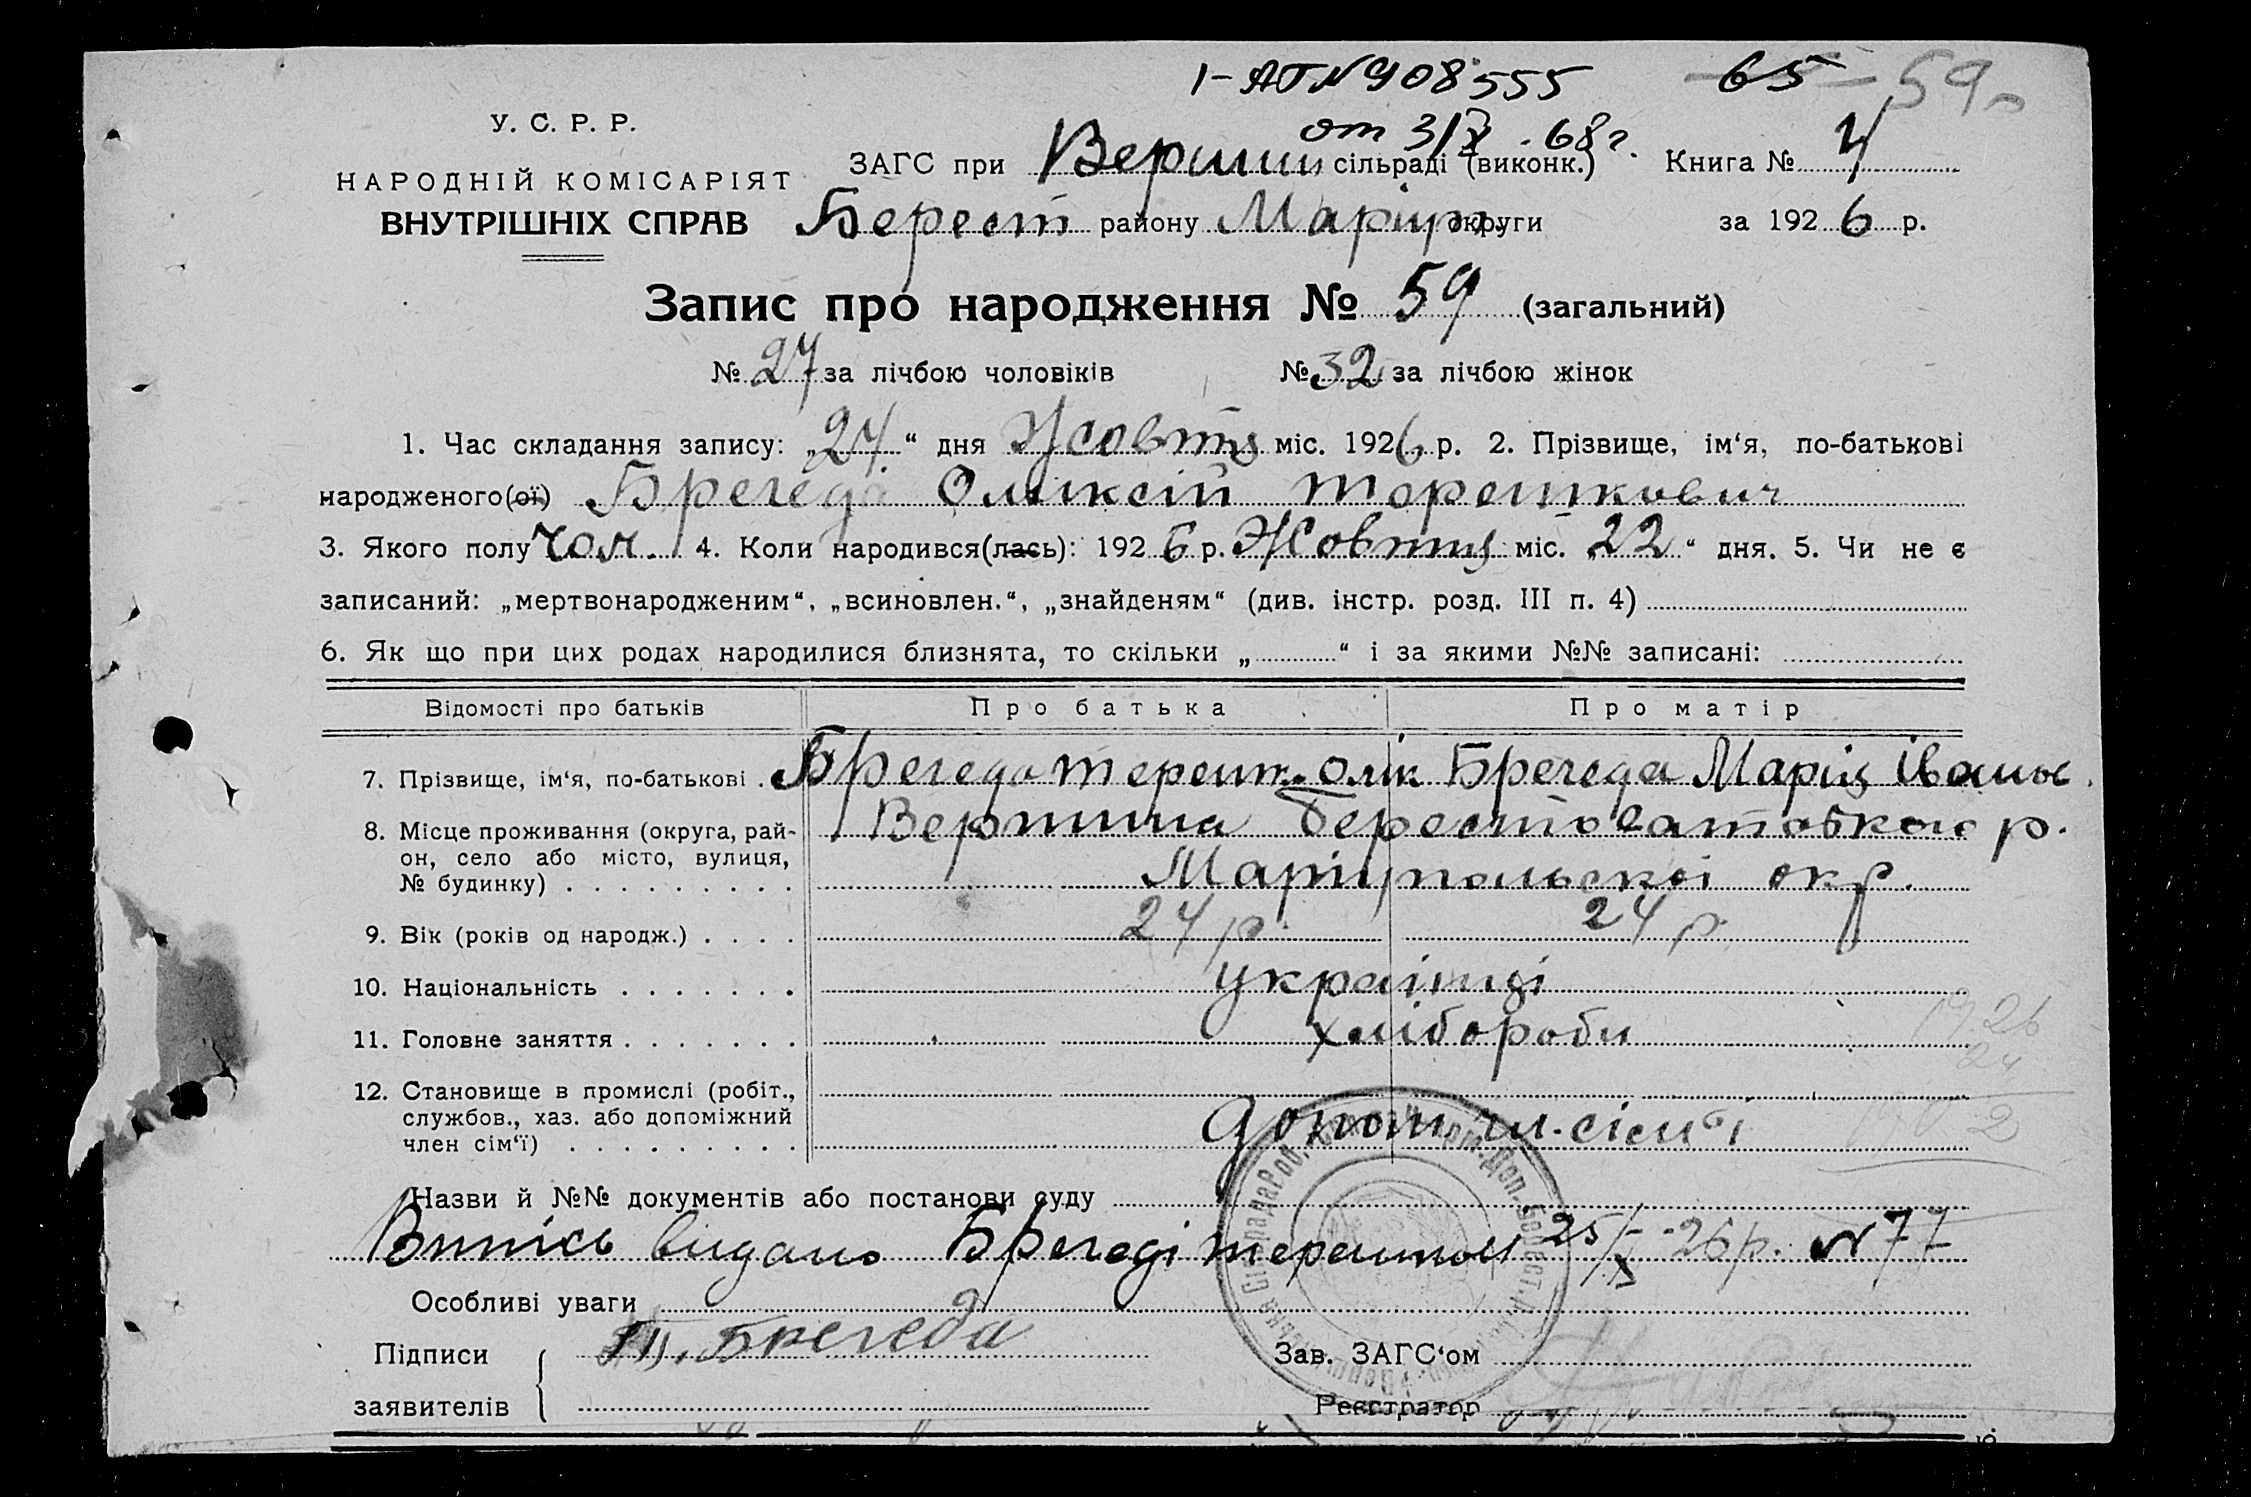 1-АП № 908555 65 - 59
от 3/X .68 г.
У. С. Р. Р.
НАРОДНІЙ КОМІСАРІЯТ
ВНУТРІШНІХ СПРАВ
ЗАГС при Вершин сільраді (виконк.) Книга № 4
Берест району Маріуп. округи за 1926 р.
Запис про народження № 59 (загальний)
№ 27 за лічбою чоловіків № 32 за лічбою жінок
1. Час складання запису: „24“ дня Жовтня міс. 1926 р. 2. Прізвище, ім‘я, по-батькові
народженого(ої) Брегеда Олексій Терешкович
3. Якого полу чол. 4. Коли народився(лась): 1926 р. Жовтня міс. „22“ дня. 5. Чи не є
записаний: „мертвонародженим“, „всиновлен.“, „знайденям“ (див. інстр. розд. III п. 4)
6. Як що при цих родах народилися близнята, то скільки „ “ і за якими №№ записані:
Відомості про батьків Про батька Про матір
7. Прізвище, ім‘я, по-батькові . Брегеда Терешк. Олік Брегеда Марія Івань.
8. Місце проживання (округа, рай-
он, село або місто, вулиця,
№ будинку) . . . . . . . . .
Вершина Берестоватовкого р.
Маріупольскої окр.
9. Вік (років од народж.) . . . . 24 р. 24 р.
10. Національність . . . . . . . українці
11. Головне заняття . . . . . . . хлібороби
1926
24
1902
12. Становище в промислі (робіт.,
службов., хаз. або допоміжний
член сім‘ї) . . . . . . . . .
допом. чл. сім‘ї
Назви й №№ документів або постанови суду
Випісь видано Брегеді Терешкой 25/X-26 р. № 77
Особливі уваги
Підписи Т. Брегеда Зав. ЗАГС‘ом
заявителів Реєстратор